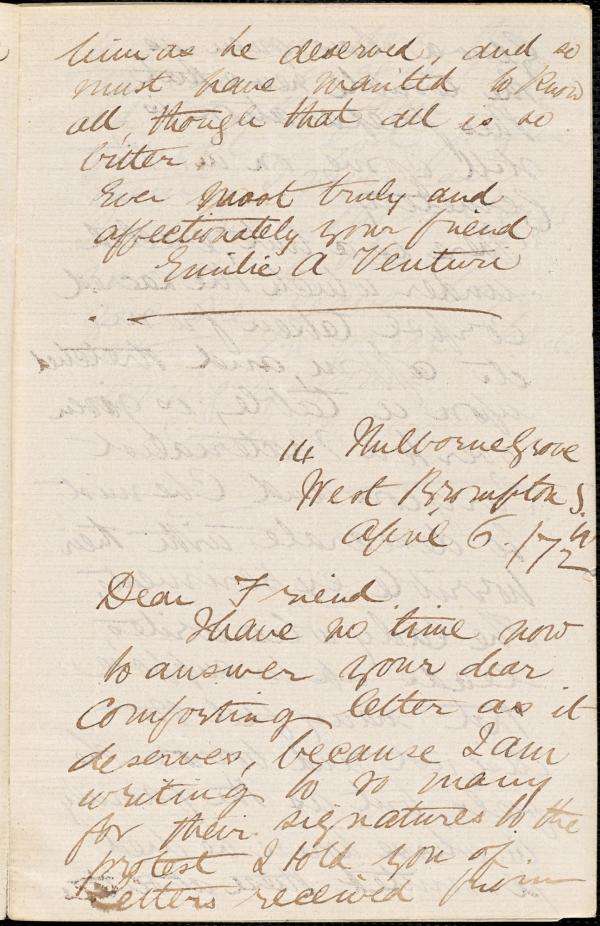 him as he deserved, and so
must have wanted to know
all, though that all is so
bitter.
Ever most truly and
affectionately your friend
Emilie A Venturi
14 Milborne Grove
West Brompton S.W
April 6. /72
Dear Friend
I have no time now
to answer your dear
comforting letter as it
deserves, because I am
writing to so many
for their signatures to the
protest I told you of
Letters received from